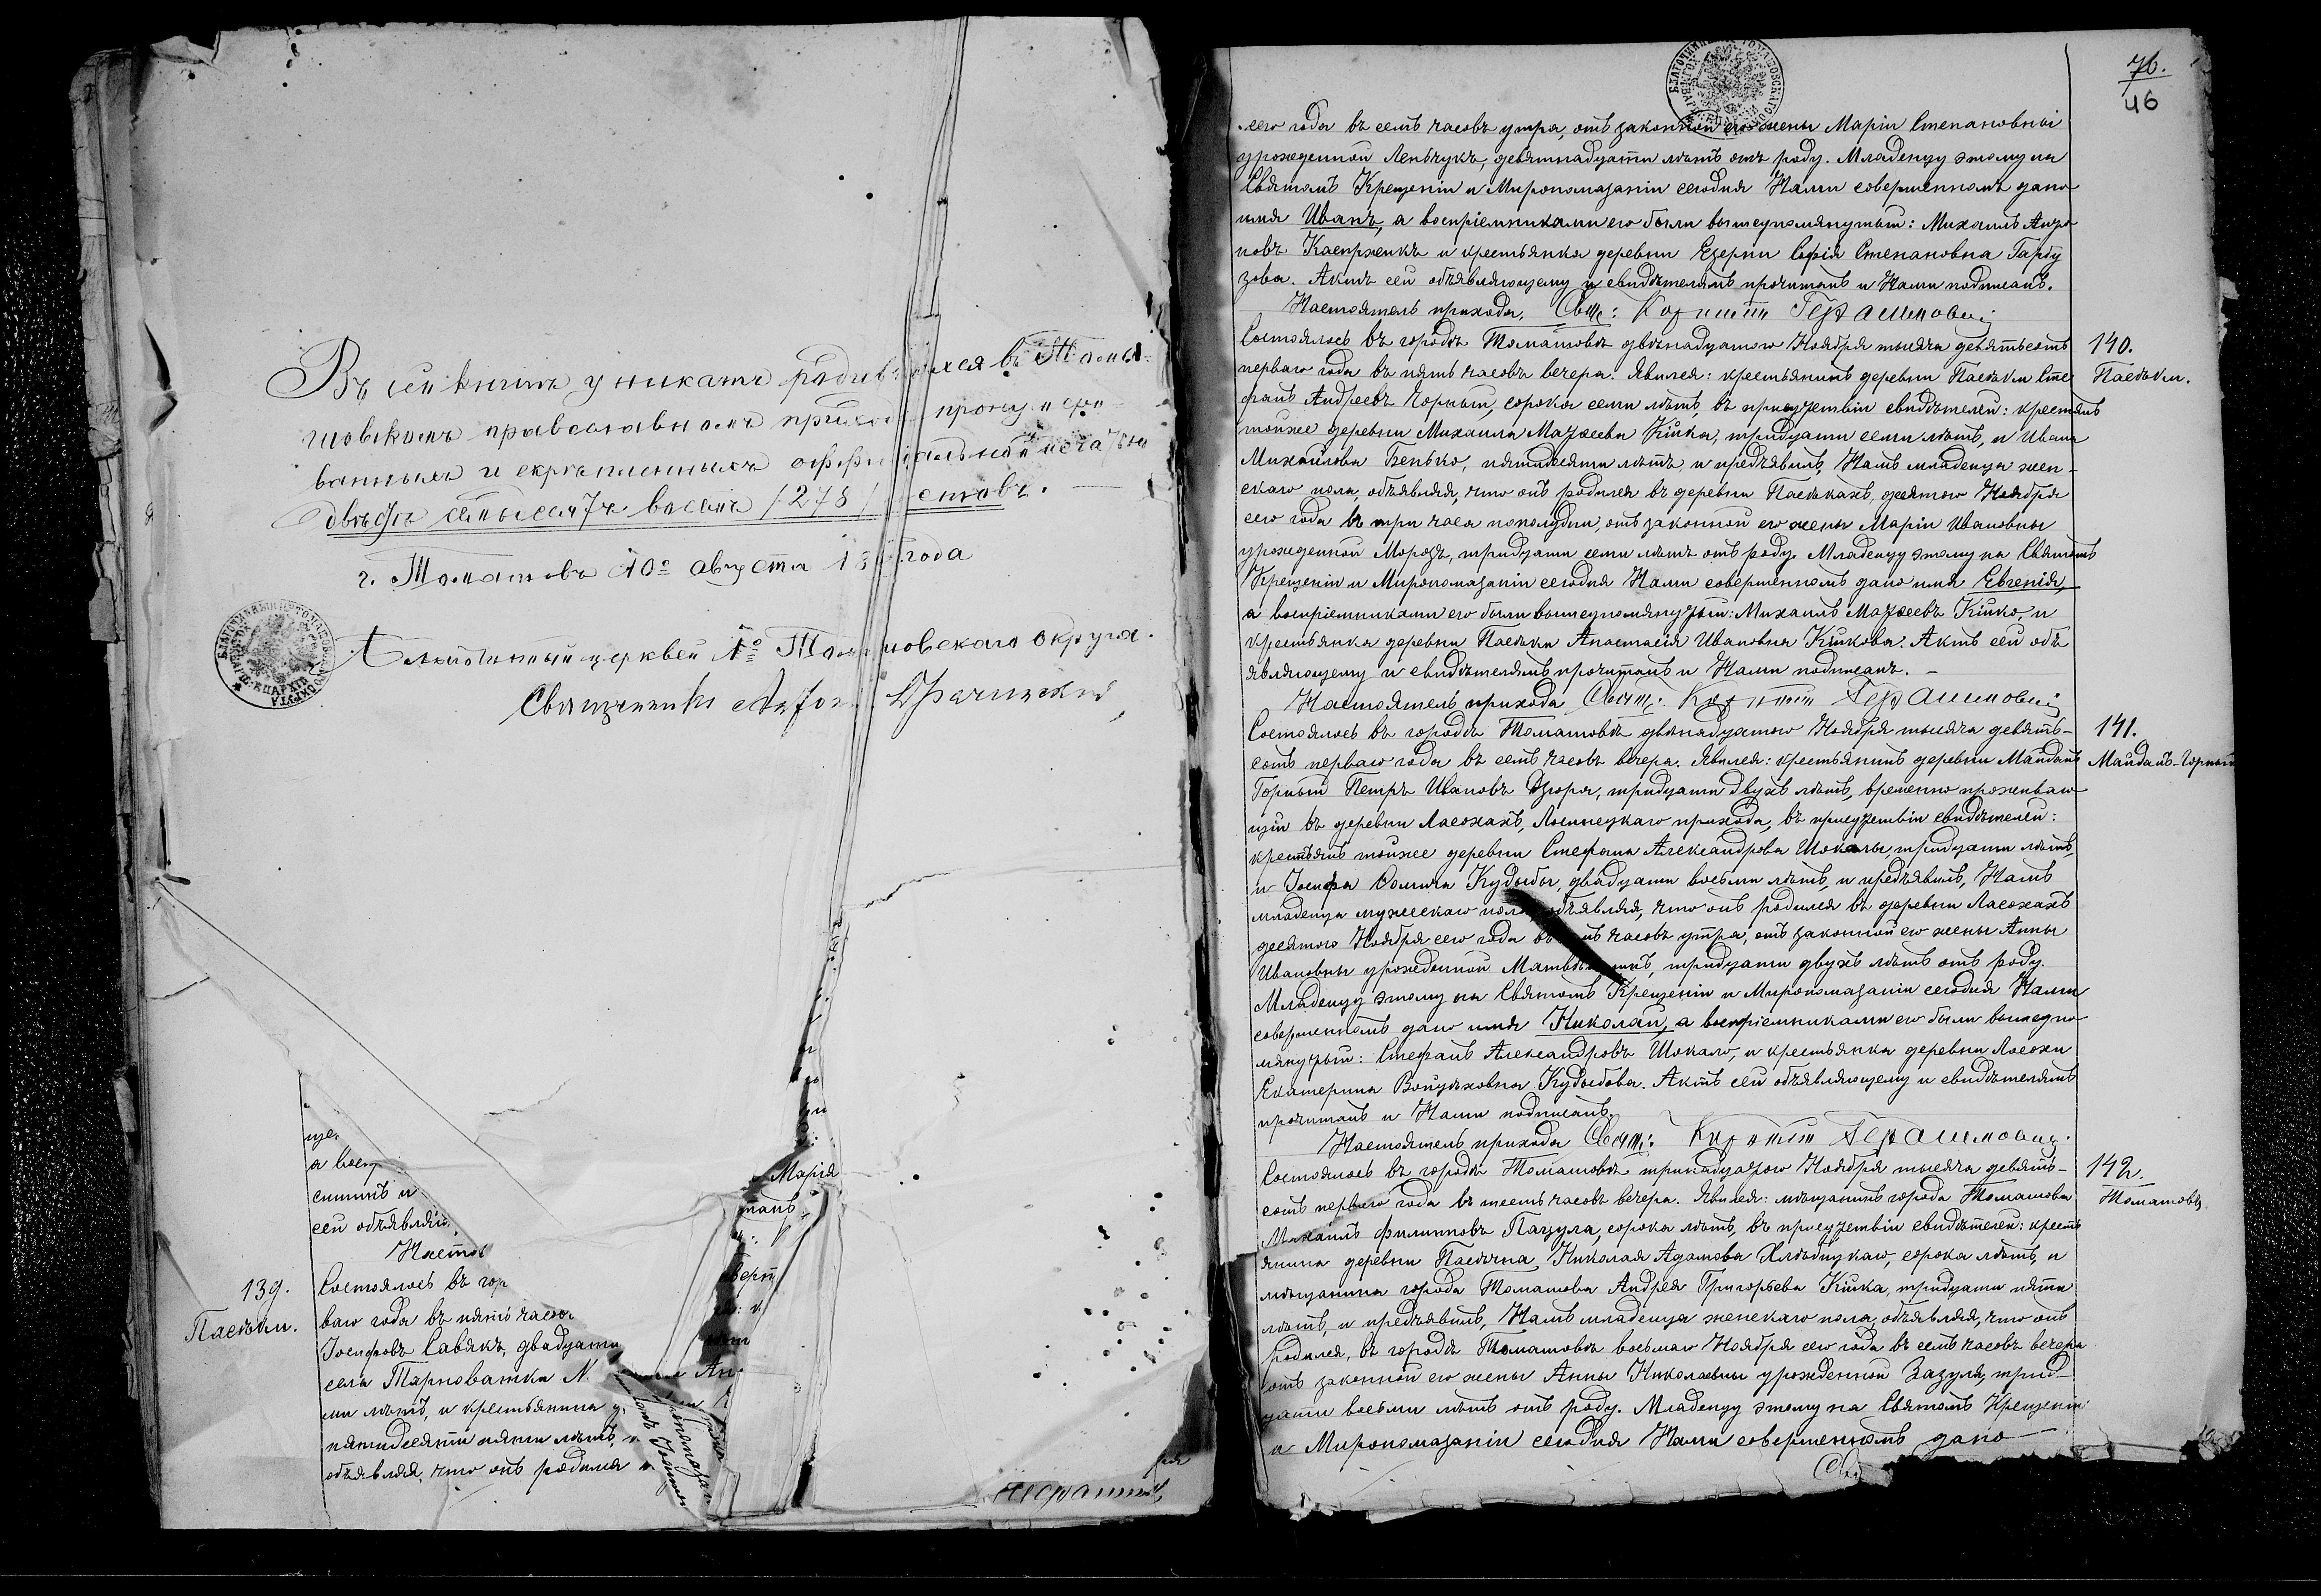 Въ сей книгѣ уникатѣ родив хся въ Тома-
шовскомъ православномъ приход пронумеро
ванныхъ и скрѣпленныхъ оффи іальной печатью
двѣсти семьдесятъ восемь /278/ стовъ.
г. Томашовъ 10º августа 1 года
Благочинный церквей 1º Том шовскаго округа.
Священникъ
ще
а воспр
сей объявляю
Насто
Марія
танъ
139.
Пасѣки.
Состоялось въ гор
ваго года въ пять часов
Іосифовъ Савякъ, двадцати
села Тарноватка Н.
ми лѣтъ, и крестьянина д
пятидесяти пяти лѣтъ, и
объявляя, что онъ родился
76.
46
сего года въ семь часовъ утра, отъ законной его жены Маріи Степановны
урожденной Леньчукъ, девятнадцати лѣтъ отъ роду. Младенцу этому на
Святомъ Крещеніи и Миропомазаніи сегодня Нами совершенномъ дано
имя Иванъ, а воспріемниками его были вышеупомянутый: Михаилъ Анто
новъ Каспржикъ и крестьянка деревни Езерни Софія Степановна Гарбу
зова. Актъ сей объявляющему и свидѣтелямъ прочитанъ и Нами подписанъ.
Настоятель прихода, Свящ: Герасимович
Состоялось въ городѣ Томашовѣ двѣнадцатого Ноября тысяча девятьсотъ
140.
Пасѣки.
перваго года въ пять часовъ вечера. Явился: крестьянинъ деревни Пасѣки Сте
фанъ Андреевъ Чорный, сорока семи лѣтъ, въ присутствіи свидѣтелей: крестьянъ
тойже деревни Михаила Матѳеева Кійка, тридцати семи лѣтъ, и Ивана
Михайлова Бенько, пятидесяти лѣтъ, и предъявилъ, Намъ младенца жен-
скаго пола, объявляя, что онъ родился въ деревни Пасѣкахъ, десятого Ноября
сего года въ три часа пополудни, отъ законной его жены Маріи Ивановны
урожденной Морозъ, тридцати семи лѣтъ отъ роду. Младенцу этому на Святомъ
Крещеніи и Миропомазаніи сегодня Нами совершенномъ дано имя Евгенія,
а воспріемниками его были вышеупомянутый: Михаилъ Матѳеевъ Кійко, и
крестьянка деревни Пасѣки Анастасія Ивановна Кійкова. Актъ сей объ
являющему и свидѣтелямъ прочитанъ и Нами подписанъ.
Настоятель прихода Свящ: Герасимович
Состоялось въ городѣ Томашовѣ двѣнадцатого Ноября тысяча девять-
141.
Майданъ-Горный
сотъ перваго года въ семь часовъ вечера. Явился: крестьянинъ деревни Майданъ
Горный Петръ Ивановъ Дзюра, тридцати двухъ лѣтъ, временно проживаю
щій въ деревни Ласохахъ, Лосинецкаго прихода, въ присутствіи свидѣтелей:
крестьянъ тойже деревни Стефана Александрова Шокалы, тридцати лѣтъ,
и Іосифа Ѳомича Кудыбы, двадцати восьми лѣтъ, и предъявилъ, Намъ
младенца мужескаго пола, объявляя, что онъ родился въ деревни Ласохахъ
десятого Ноября сего года въ часовъ утра, отъ законной его жены Анны
Ивановны урожденной тридцати двухъ лѣтъ отъ роду.
Младенцу этому на Святомъ Крещеніи и Миропомазаніи сегодня Нами
совершенномъ дано имя Николай, а воспріемниками его были вышеупо-
мянутый: Стефанъ Александровъ Шокало, и крестьянка деревни Ласохи
Екатерина Войцѣховна Кудыбова. Актъ сей объявляющему и свидѣтелямъ
прочитанъ и Нами подписанъ.
Настоятель прихода Свящ: Герасимович.
Состоялось въ городѣ Томашовѣ тринадцатого Ноября тысяча девять-
142.
Томашовъ
сотъ перваго года въ шесть часовъ вечера. Явился: мѣщанинъ города Томашова
Михаилъ Филипповъ Пацула, сорока лѣтъ, въ присутствіи свидѣтелей: кресть
янина деревни Пасѣчна, Николая Адамова Хлѣбицкаго, сорока лѣтъ, и
мѣщанина города Томашова Андрея Григорьева Кійка, тридцати пяти
лѣтъ, и предъявилъ, Намъ младенца женскаго пола, объявляя, что онъ
родился, въ городѣ Томашовѣ восьмаго Ноября сего года въ семь часовъ вечера
отъ законной его жены Анны Николаевны урожденной Зазуля, трид-
цати восьми лѣтъ отъ роду. Младенцу этому на Святомъ Крещеніи
и Миропомазаніи сегодня Нами совершенномъ дано